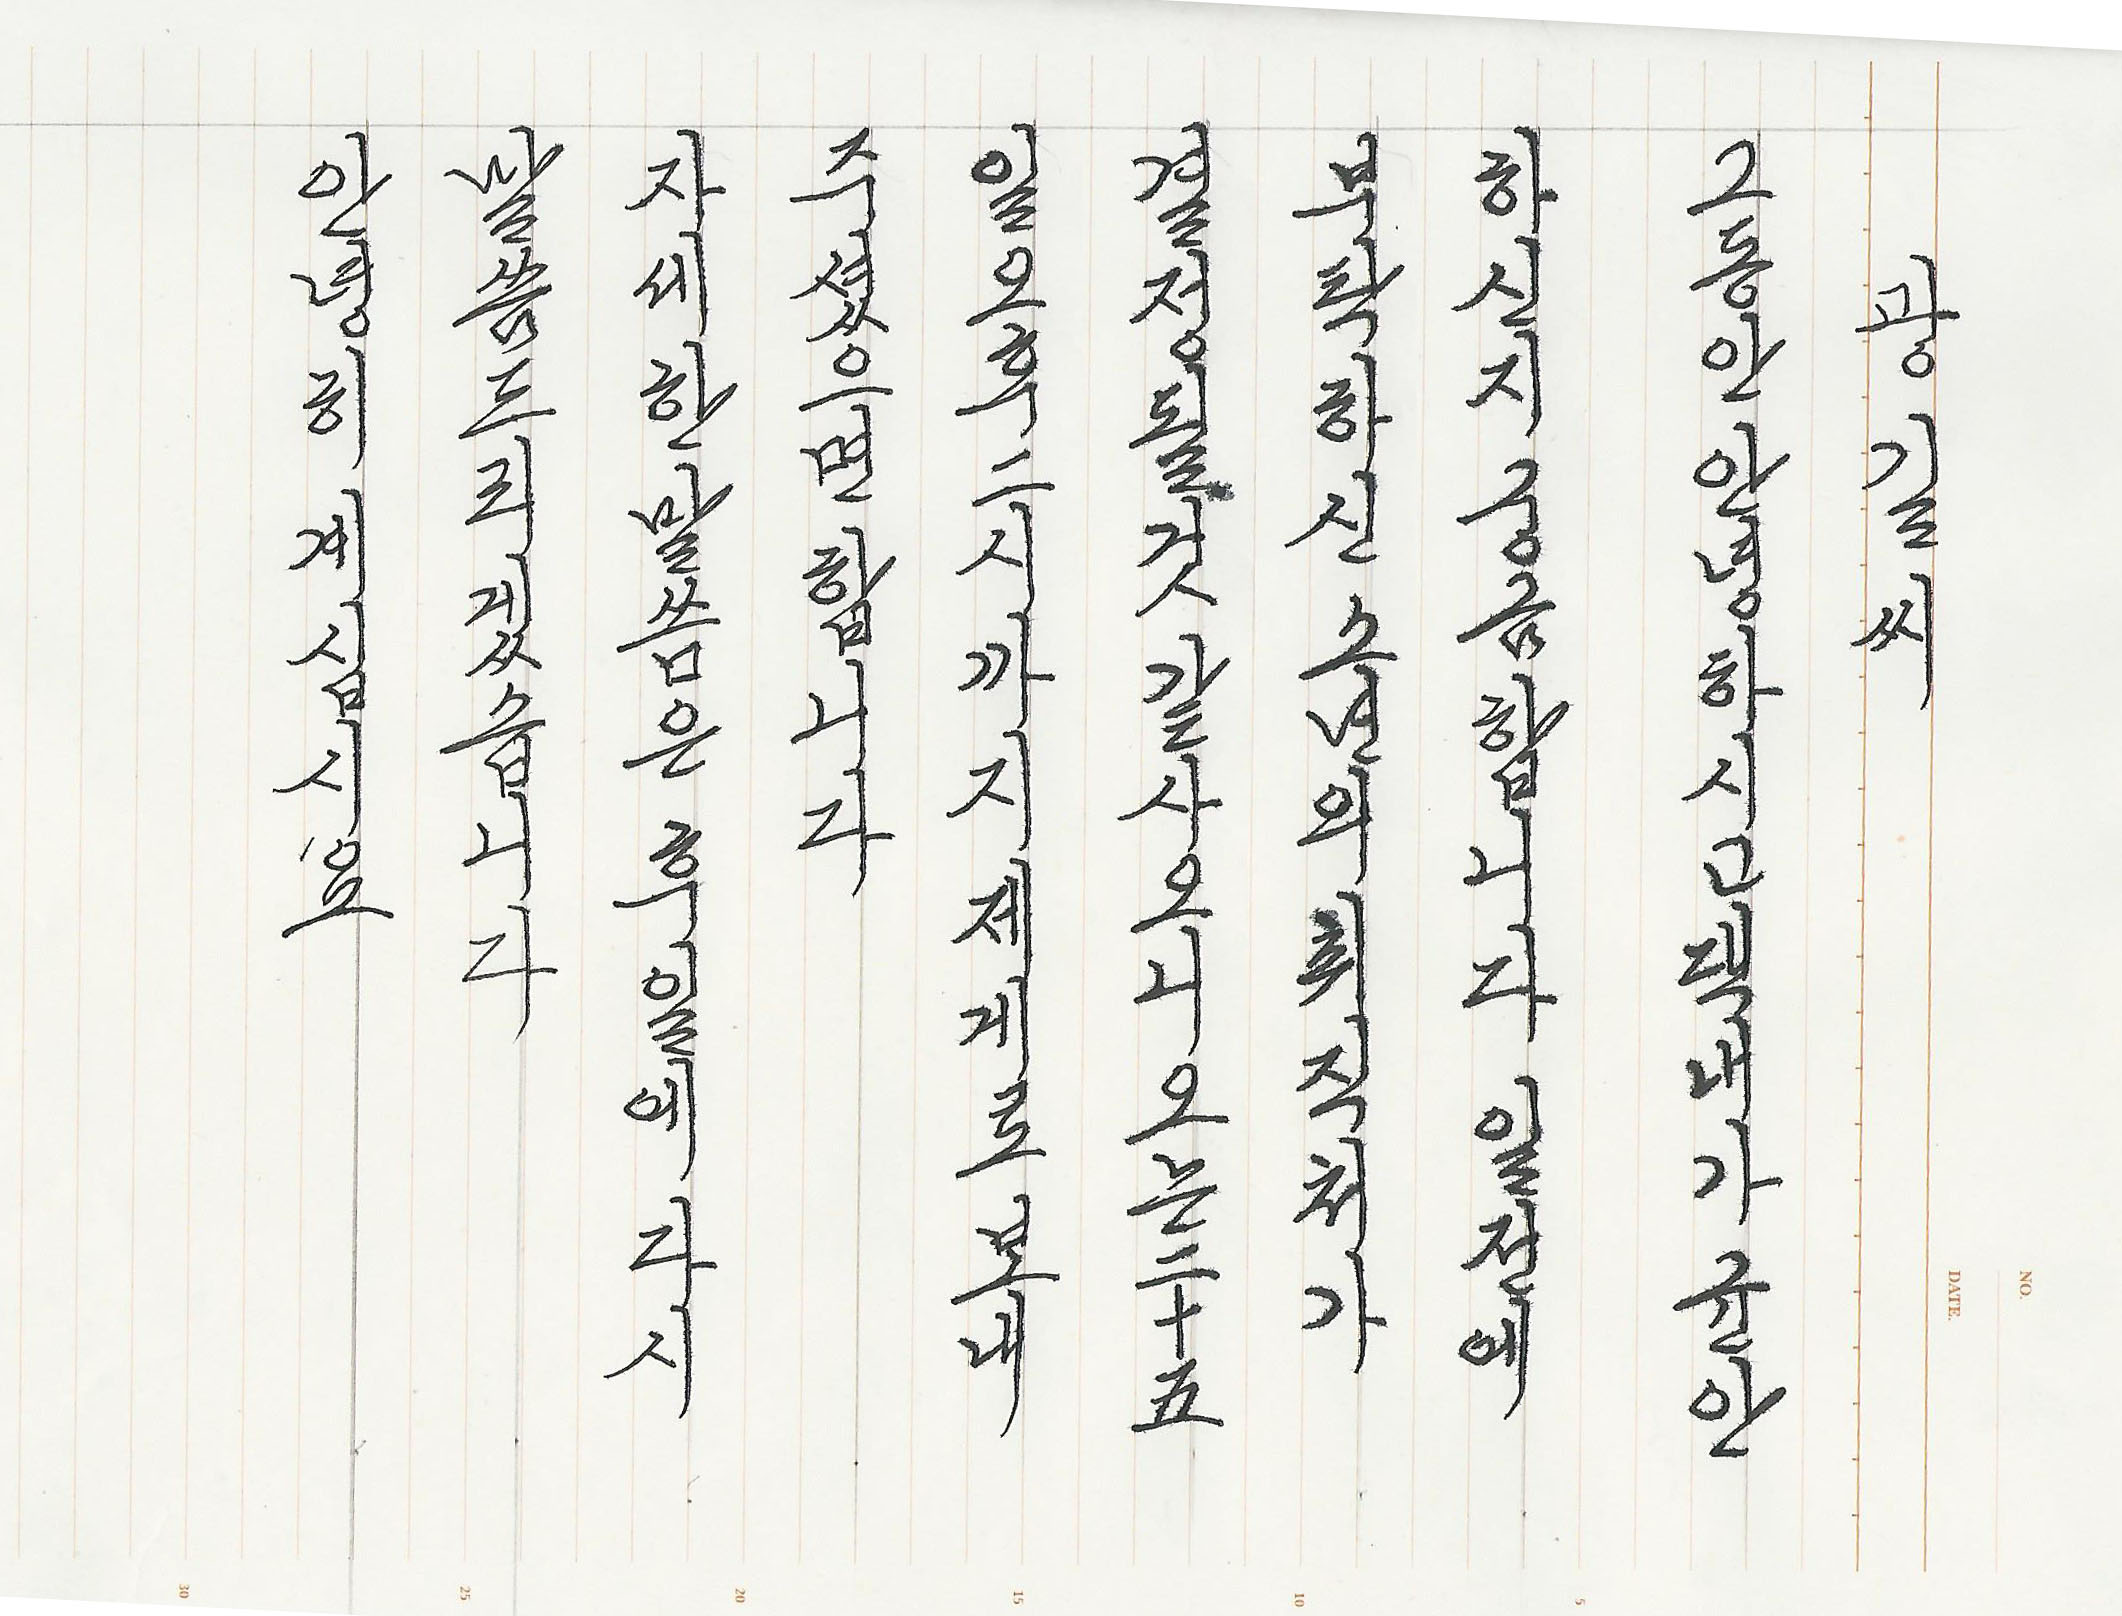 광길씨
그동안 안녕하시고 댁내가 균안
하신지 궁금합니다 일전에
부탁하신 숙년의 취직처가
결정될것 같사오니 오는 二十五
일오후 二시까지 제게로 보내
주셨으면 합니다
자세한 말씀은 후일에 다시
말씀드리겠습니다
안녕히 계십시요
NO.
DATE.
5
10
15
20
25
30